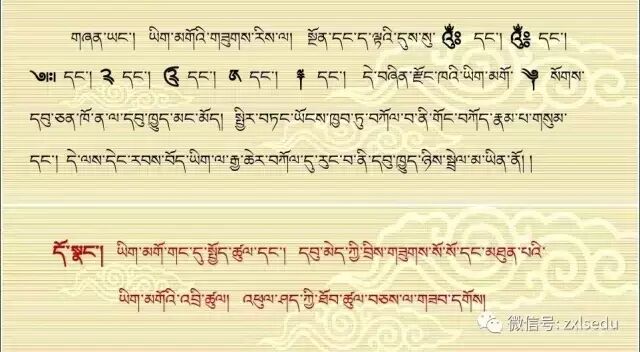 གཞན་ཡང་། ཡིག་མགོའི་གཟུགས་རིས་ལ། སྔོན་དང་ད་ལྟའི་དུས་སུ་ ༄༅༅ དང་། ༄༅༅ དང་།
དང་། དང་། དང་། དང་། དང་། དེ་བཞིན་རྫོང་ཁའི་ཡིག་མགོ་ སོགས་
དབུ་ཅན་ཁོ་ན་ལ་དབུ་ཁྱུད་མང་མོད། སྤྱིར་བཏང་ཡོངས་ཁྱབ་ཏུ་བཀོལ་བ་ནི་གོང་བཀོད་རྣམ་པ་གསུམ་
དང་། དེ་ལས་དེང་རབས་བོད་ཡིག་ལ་རྒྱ་ཆེར་བཀོལ་དུ་རུང་བ་ནི་དབུ་ཁྱུད་ཉིས་སྦྲེལ་མ་ཡིན་ནོ། །
དོ་སྣང་། ཡིག་མགོ་གང་དུ་སྤྱོད་ཚུལ་དང་། དབུ་མེད་ཀྱི་བྲིས་གཟུགས་སོ་སོ་དང་མཐུན་པའི་
ཡིག་མགོའི་འབྲི་ཚུལ། འཕུལ་ཤད་ཀྱི་ཐོབ་ཚུལ་བཅས་ལ་གཟབ་དགོས།
微信号: zxlsedu